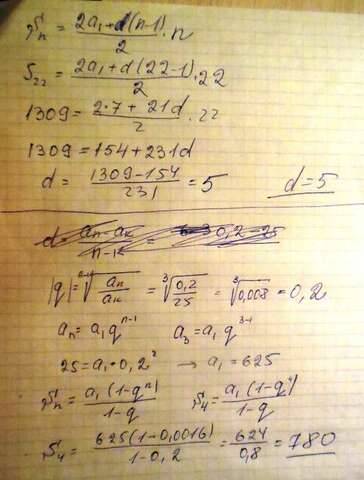 Sn = 2a₁+d(n-1)/2 · n
S₂₂ = 2a₁+d(22-1)/2 · 22
1309 = 2·7+21d/2 · 22
1309 = 154+231d
d = 1309-154/231 = 5 d=5
d = aₙ-aₖ/n-1 = 0,2-25
|q| = ⁿ⁻ᵏ√aₙ/aₖ = ³√0,2/25 = ³√0,008 = 0,2
aₙ = a₁qⁿ⁻¹ a₃ = a₁q³⁻¹
25 = a₁·0,2² → a₁ = 625
Sₙ = a₁(1-qⁿ)/1-q S₄ = a₁(1-q⁴)/1-q
S₄ = 625(1-0,0016)/1-0,2 = 624/0,8 = 780